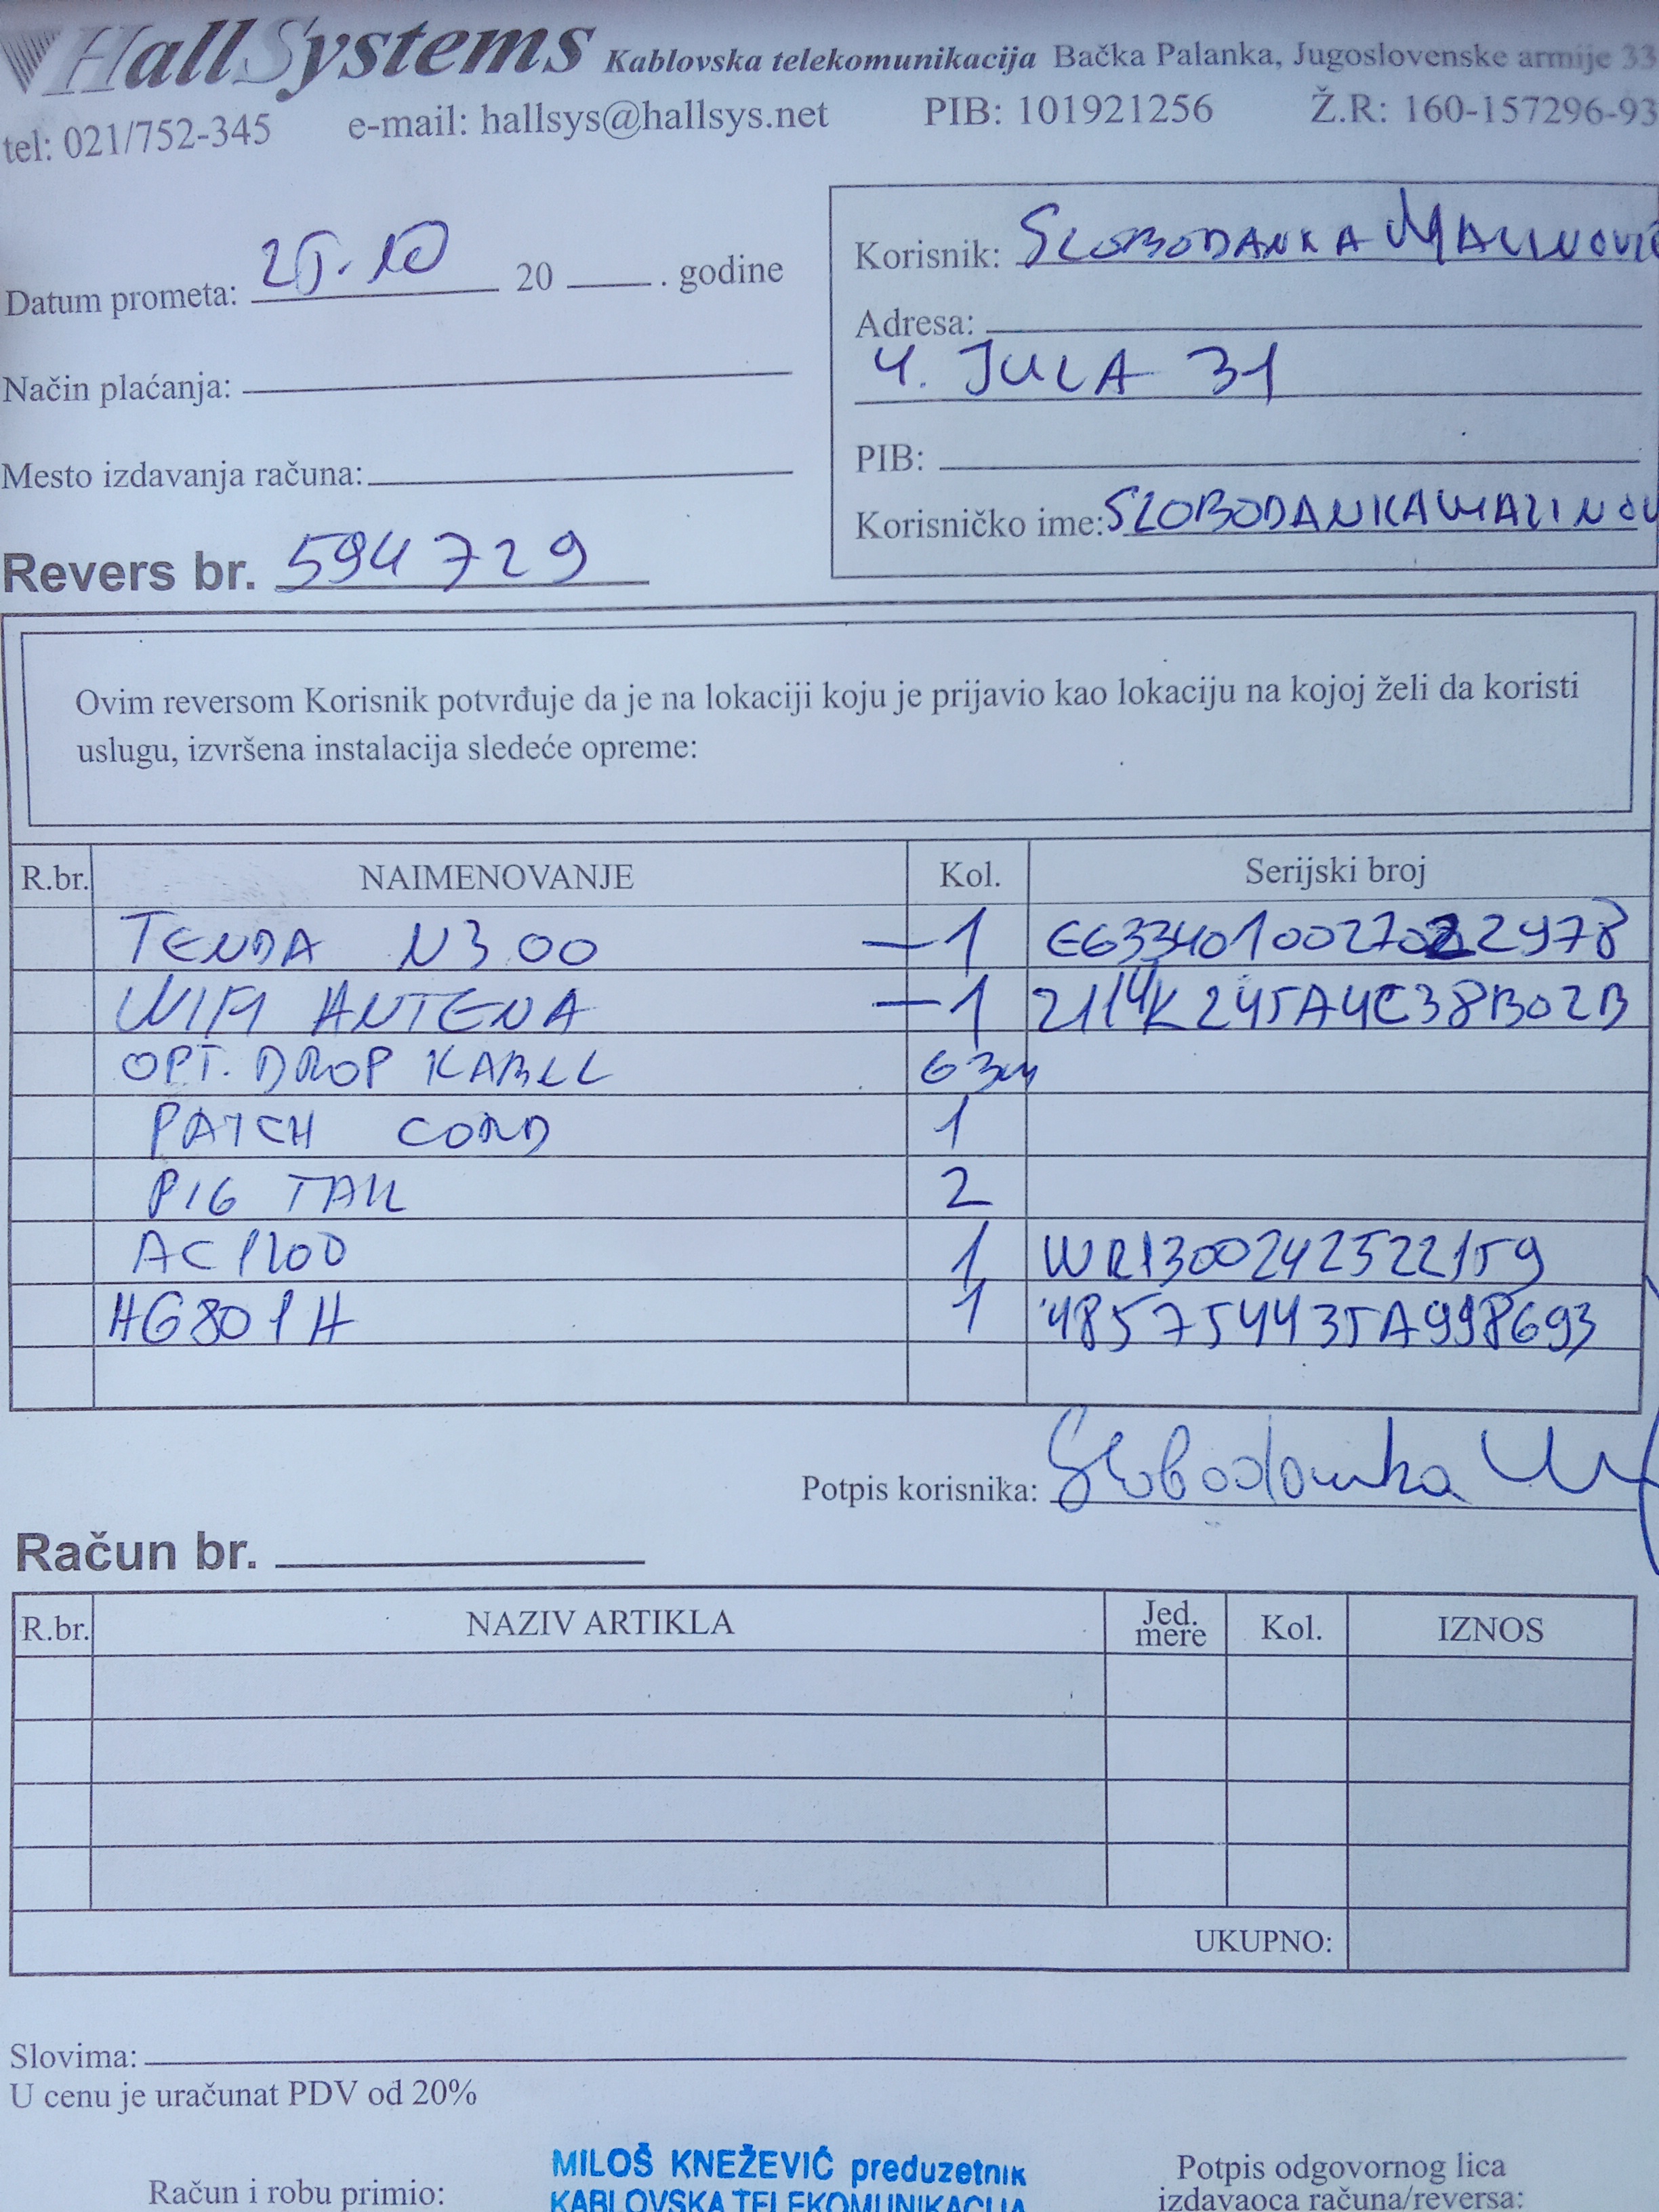 HallSystems Kablovska telekomunikacija Bačka Palanka, Jugoslovenske armije 33
tel: 021/752-345 e-mail: hallsys@hallsys.net PIB: 101921256 Ž.R: 160-157296-93
Datum prometa: 25.10 20 ____. godine
Način plaćanja:
Mesto izdavanja računa:
Revers br. 594729
Korisnik: SLOBODANKA MALINOVIĆ
Adresa:
4. JULA 31
PIB:
Korisničko ime: SLOBODANKAMALINOV
Ovim reversom Korisnik potvrđuje da je na lokaciji koju je prijavio kao lokaciju na kojoj želi da koristi
uslugu, izvršena instalacija sledeće opreme:
R.br. NAIMENOVANJE Kol. Serijski broj
TENDA N300 —1 E6334010027022978
WIFI ANTENA —1 2114K245A4C38B02B
OPT. DROP KABEL 63m
PATCH CORD 1
PIG TAIL 2
AC1200 1 WR1300242522159
HG8010H 1 4857544435A998693
Potpis korisnika: Slobodanka
Račun br.
R.br. NAZIV ARTIKLA Jed. mere Kol. IZNOS
UKUPNO:
Slovima:
U cenu je uračunat PDV od 20%
Račun i robu primio:
MILOŠ KNEŽEVIĆ preduzetnik
KABLOVSKA TELEKOMUNIKACIJA
Potpis odgovornog lica
izdavaoca računa/reversa: